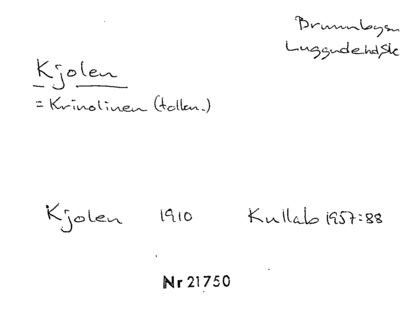 Brunnbysn
Luggude hd Sk
Kjolen
= Krinolinen (tolkn.)
Kjolen 1910 Kullab 1957:88
Nr 21750